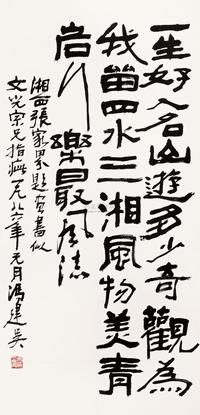 一生好入名山遊多少奇觀為
我留四水三湘風物美青
岩山樂最風流
湘西張家界題句書似
文光宗兄指疵一九八六年元月馮建吳